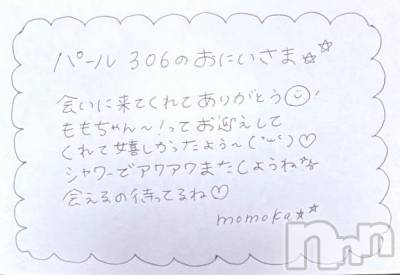 パール 306のおにいさま☆☆
会いに来てくれてありがとう☺!
ももちゃん〜!ってお迎えして
くれて嬉しかったよう〜(´ω`)♡
シャワーでアワアワまたしようね♪
会えるの待ってるね♡
momoka☆☆
nn